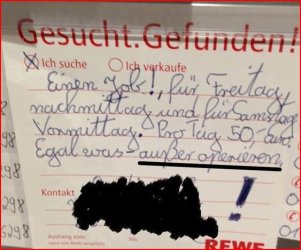 Gesucht.Gefunden!
Ich suche Ich verkaufe
Einen Job!, für Freitag
nachmittag und für Samstag
Vormittag. Pro Tag 50-Euro
Egal was - außer operieren
Kontakt !
Aushang vom: bis:
REWE
298
298
5298